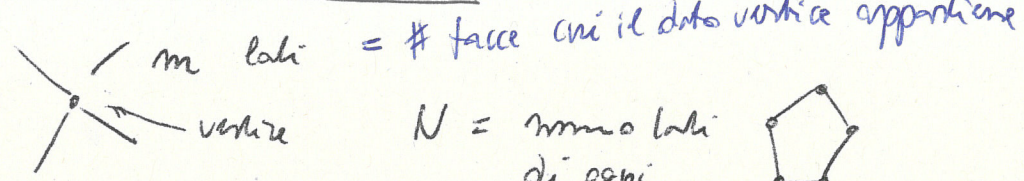 m lati = # facce cui il dato vertice appartiene
vertice
N = numero lati
di ogni